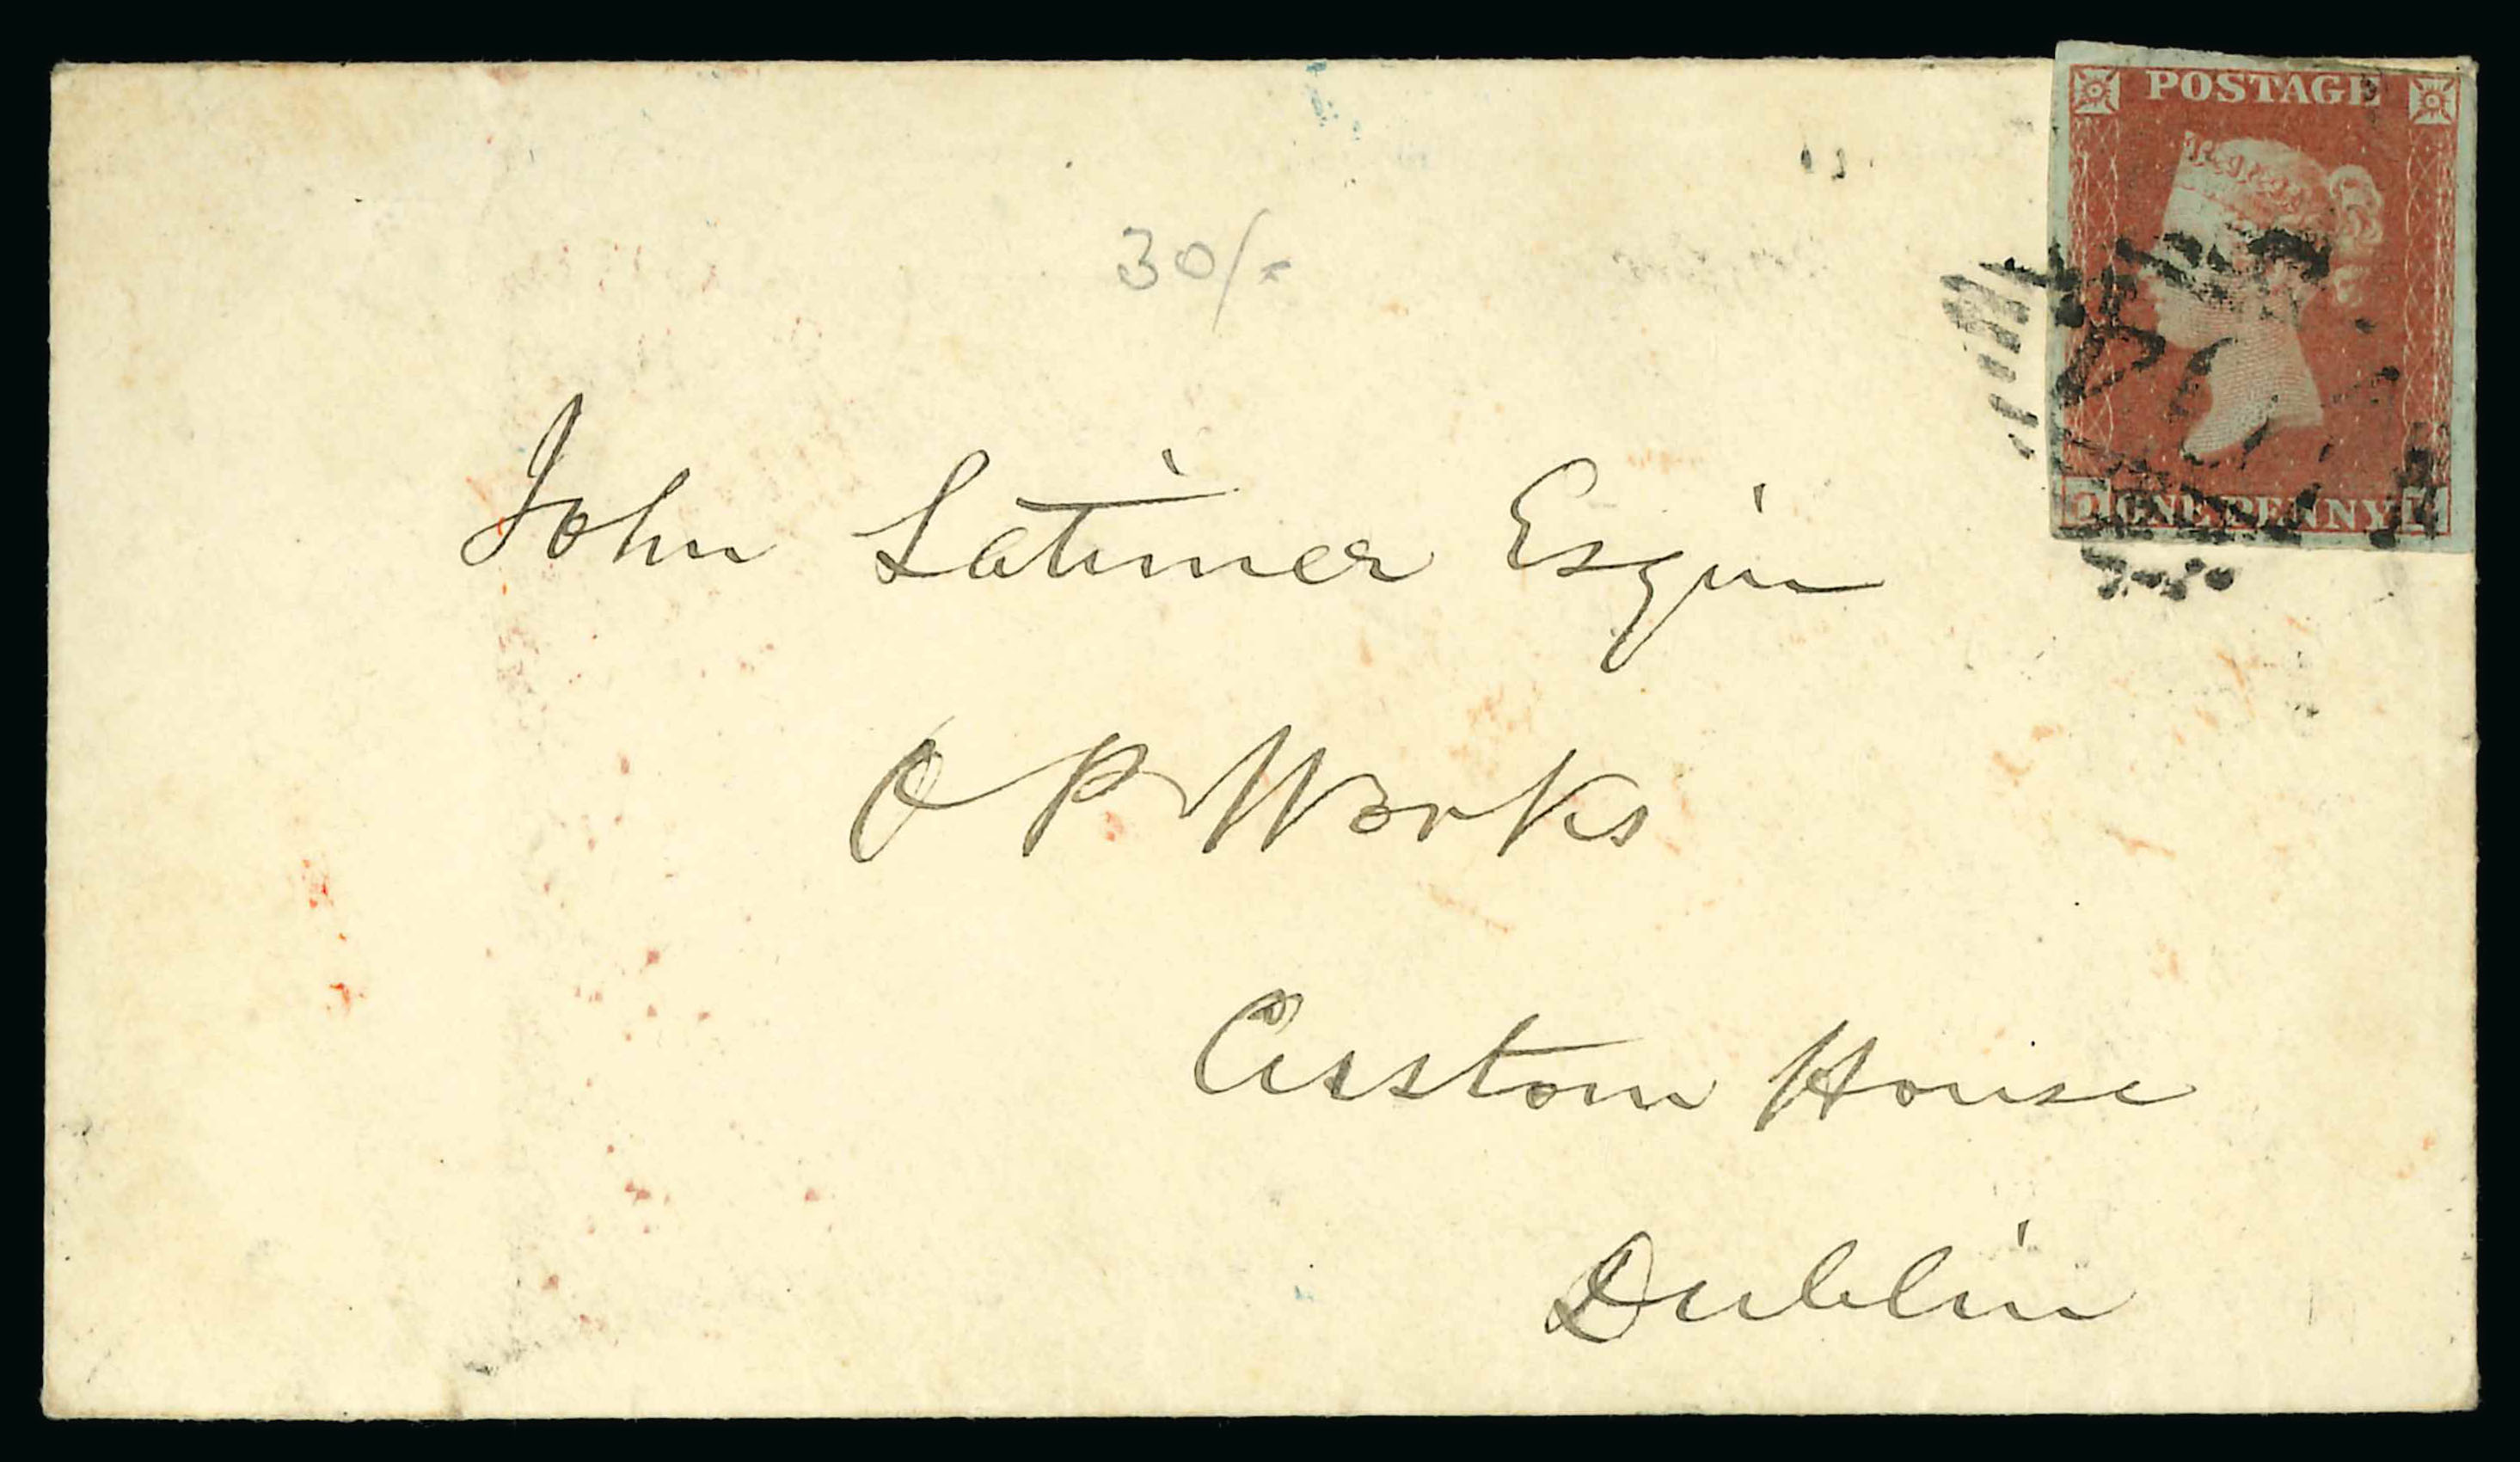 POSTAGE
ONE PENNY
30/-
John Latimer Esquire
O P Works
Custom House
Dublin